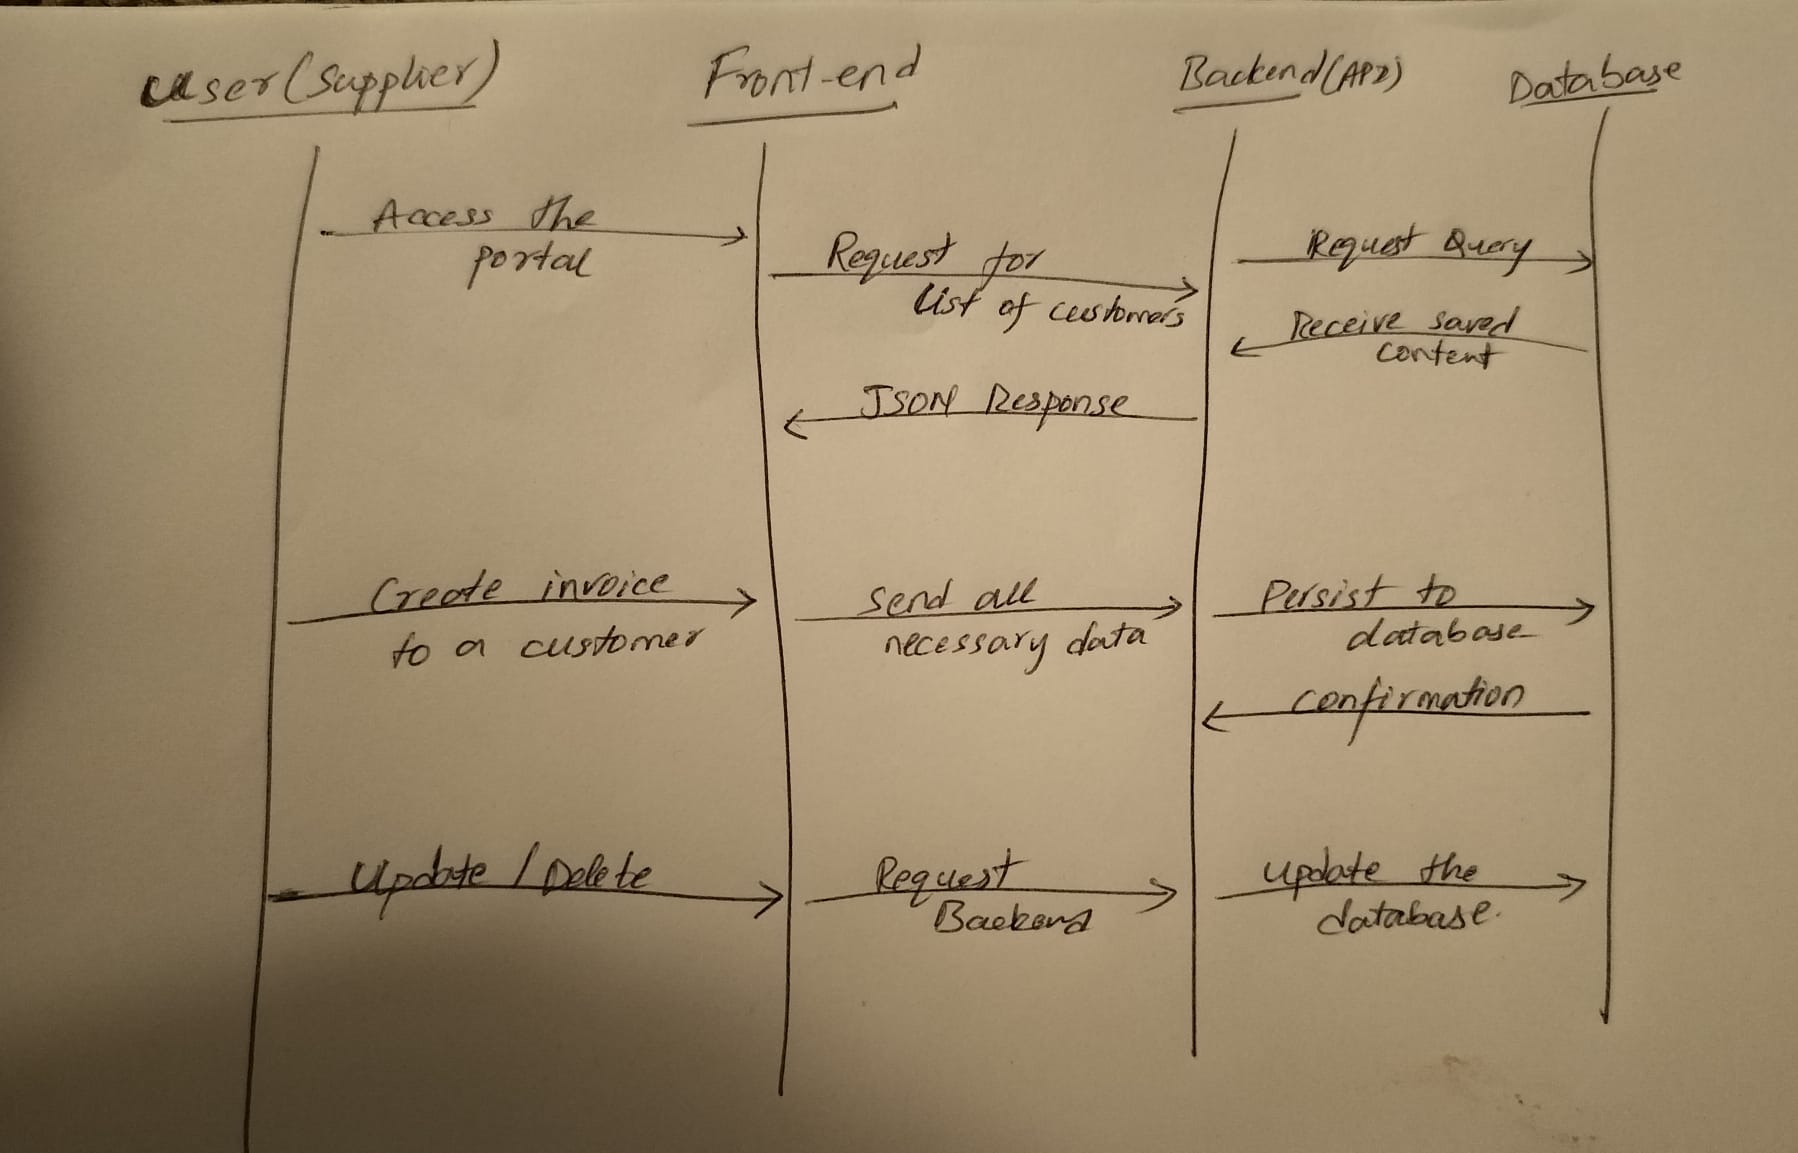 User(Supplier)
Front-end
Backend(API)
Database
Access the
portal
Request for
List of customers
Request Query
Receive saved
content
JSON Response
Create invoice
to a customer
Send all
necessary data
Persist to
database
confirmation
Update / Delete
Request
Backend
update the
database.